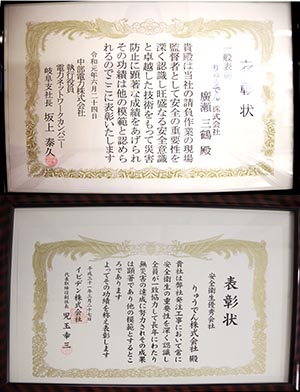 表彰状
一般表彰
りゅうでん株式会社
廣瀬 三鶴 殿
貴殿は当社の請負作業の現場
監督者として安全の重要性を
深く認識し旺盛なる安全意識
と卓越した技術をもって災害
防止に顕著な成績をあげられ
その功績は他の模範と認めら
れるのでここに表彰いたします
令和元年六月二十四日
中部電力株式会社
執行役員
電力ネットワークカンパニー
岐阜支社長 坂上 泰久
表彰状
安全衛生優秀会社
りゅうでん株式会社殿
貴社は弊社発注工事において常に
安全衛生の重要性を深く認識し
全員が一致協力して長年にわたり
無災害の達成に努力されその成果
は顕著であり他の模範とするとこ
ろであります
よってその功績を称え表彰します
平成三十一年三月二十七日
イビデン株式会社
代表取締役副社長 児玉 幸三